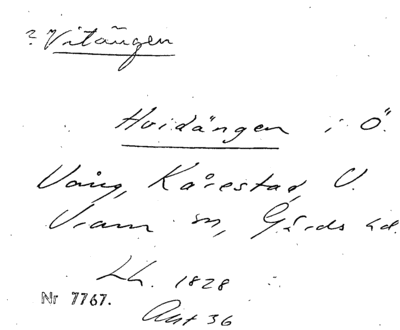 ? Vitängen
Hvidängen i Ö.
Vång, Kårestad, V.
Vram sn, Gärds hd.
Lh. 1828
Nr 7767.
Akt 36